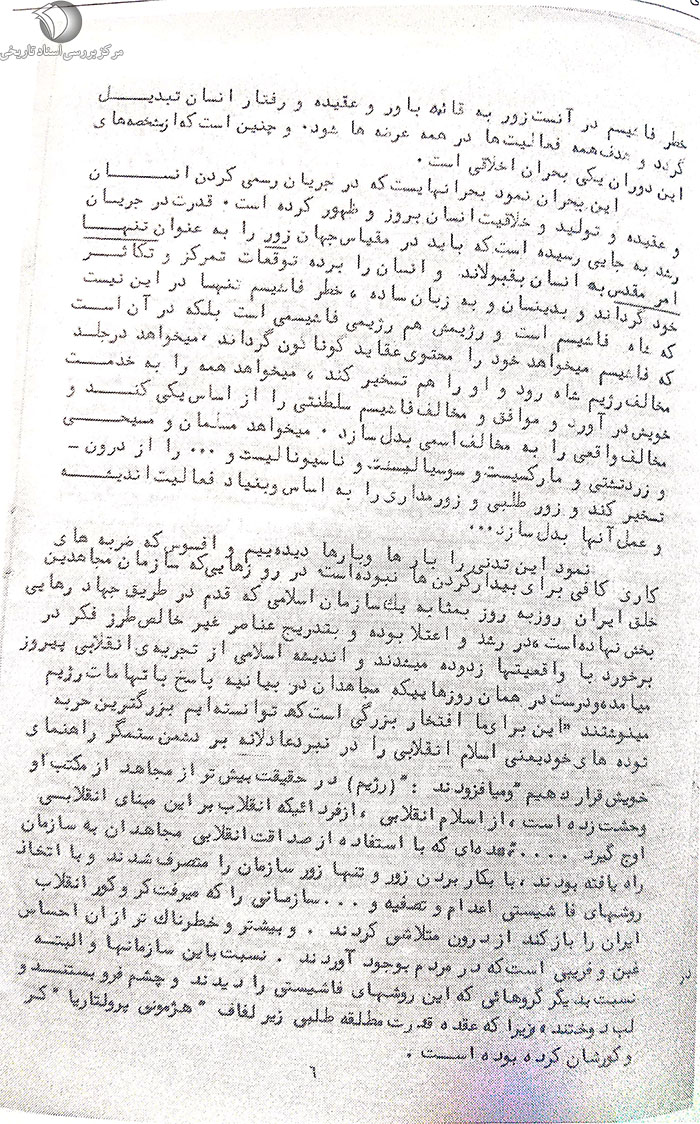 مرکز بررسی اسناد تاریخی
خطر فاشیسم در آنست زور به قائمه باور و عقیده و رفتار انسان تبدیل
گردد و هدف همه فعالیت‌ها در همه عرضه ها شود. و چنین است که از مشخصه‌های
این دوران یکی بحران اخلاقی است.
این بحران نمود بحرانهایست که در جریان رسمی کردن انسان
و عقیده و تولید و خلاقیت انسان بروز و ظهور کرده است. قدرت در جریان
رشد به جایی رسیده است که باید در مقیاس جهان زور را به عنوان تنها
امر مقدس به انسان بقبولاند و انسان را برده توقعات تمرکز و تکاثر
خود گرداند و بدینسان و به زبان ساده، خطر فاشیسم تنها در این نیست
که شاه فاشیسم است و رژیمش هم رژیمی فاشیسمی است بلکه در آن است
که فاشیسم میخواهد خود را محتوی عقاید گوناگون گرداند، میخواهد در جلد
مخالف رژیم شاه رود و او را هم تسخیر کند، میخواهد همه را به خدمت
خویش در آورد و موافق و مخالف فاشیسم سلطنتی را از اساس یکی کند و
مخالف واقعی را به مخالف اسمی بدل سازد. میخواهد مسلمان و مسیحی
و زردتشتی و مارکسیست و سوسیالیست و ناسیونالیست و ... را از درون -
تسخیر کند و زور طلبی و زورمداری را به اساس وبنیاد فعالیت اندیشه
و عمل آنها بدل سازد...
نمود این تدنی را بار ها وبارها دیده‌ییم و افسوس که ضربه های
کاری کافی برای بیدارکردن ها نبوده‌است. در روزهایی‌که سازمان مجاهدین
خلق ایران روزبه روز بمثابه یك سازمان اسلامی که قدم در طریق جهاد رهایی
بخش نهاده‌است، در رشد و اعتلا بوده و بتدریج عناصر غیر خالص طرز فکر در
برخورد با واقعیتها زدوده میشدند و اندیشه اسلامی از تجربه‌ی انقلابی پیروز
میامد، ودرست در همان روزهاییکه مجاهدان در بیانیه پاسخ باتهامات رژیم
مینوشتند "این برای‌ما افتخار بزرگی است‌که توانسته‌ایم بزرگترین حربه
توده های‌خود‌یعنی اسلام انقلابی را در نبردعادلانه بر دشمن ستمگر راهنمای
خویش قرار دهیم "ومیافزودند : "(رژیم) در حقیقت بیش‌تر از مجاهد از مکتب او
وحشت زده است، از اسلام انقلابی، ازفردائیکه انقلاب بر این مبنای انقلابسی
اوج گیرد ....، عده‌ای که با استفاده از صداقت انقلابی مجاهدان به سازمان
راه یافته بودند، با بکار بردن زور و تنها زور سازمان را متصرف شدند و با اتخاذ
روشهای فاشیستی اعدام و تصفیه و ... سازمانی را که میرفت کر و کور انقلاب
ایران را باز کند از درون متلاشی کردند . و بیشتر و خطرناك تر از ان احساس
غبن و فریبی است‌که در مردم بوجود آوردند . نسبت باین سازمانها و البته
نسبت بدیگر گروهائی که این روشهای فاشیستی را دیدند و چشم فرو بستند و در
لب دوختند، زیرا که عقده قدرت مطلقه طلبی زیر لفاف "هژمونی پرولتاریا" کر
و کورشان کرده بوده است .
٦